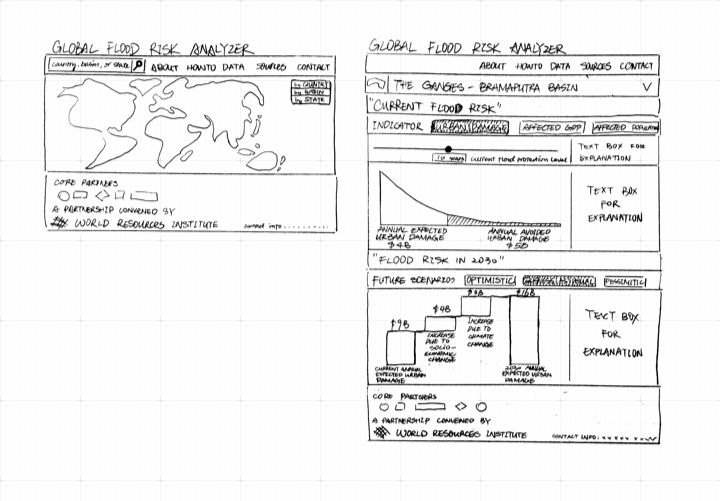 GLOBAL FLOOD RISK ANALYZER
country, basin, or state ABOUT HOWTO DATA SOURCES CONTACT
by COUNTRY
by BASIN
by STATE
CORE PARTNERS
A PARTNERSHIP CONVENED BY
WORLD RESOURCES INSTITUTE contact info
GLOBAL FLOOD RISK ANALYZER
ABOUT HOWTO DATA SOURCES CONTACT
THE GANGES - BRAHMAPUTRA BASIN
"CURRENT FLOOD RISK"
INDICATOR URBAN DAMAGE AFFECTED GDP AFFECTED POPULATION
10 years current flood protection level
TEXT BOX FOR
EXPLANATION
TEXT BOX
FOR
EXPLANATION
ANNUAL EXPECTED
URBAN DAMAGE
$4B
ANNUAL AVOIDED
URBAN DAMAGE
$5B
"FLOOD RISK IN 2030"
FUTURE SCENARIOS OPTIMISTIC PESSIMITIC
$9B
CURRENT ANNUAL
EXPECTED URBAN
DAMAGE
$4B
INCREASE
DUE TO
SOCIO-
ECONOMIC
CHANGE
INCREASE
DUE TO
CLIMATE
CHANGE
$16B
2030 ANNUAL
EXPECTED URBAN
DAMAGE
TEXT BOX
FOR
EXPLANATION
CORE PARTNERS
A PARTNERSHIP CONVENED BY
WORLD RESOURCES INSTITUTE CONTACT INFO: